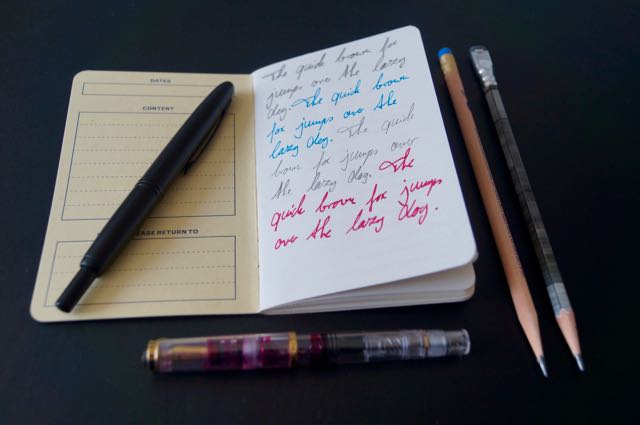 DATES
CONTENT
EASE RETURN TO
The quick brown fox
jumps over the lazy
dog. The quick brown
fox jumps over the
lazy dog. The quick
brown fox jumps over
the lazy dog. The
quick brown fox jumps
over the lazy dog.